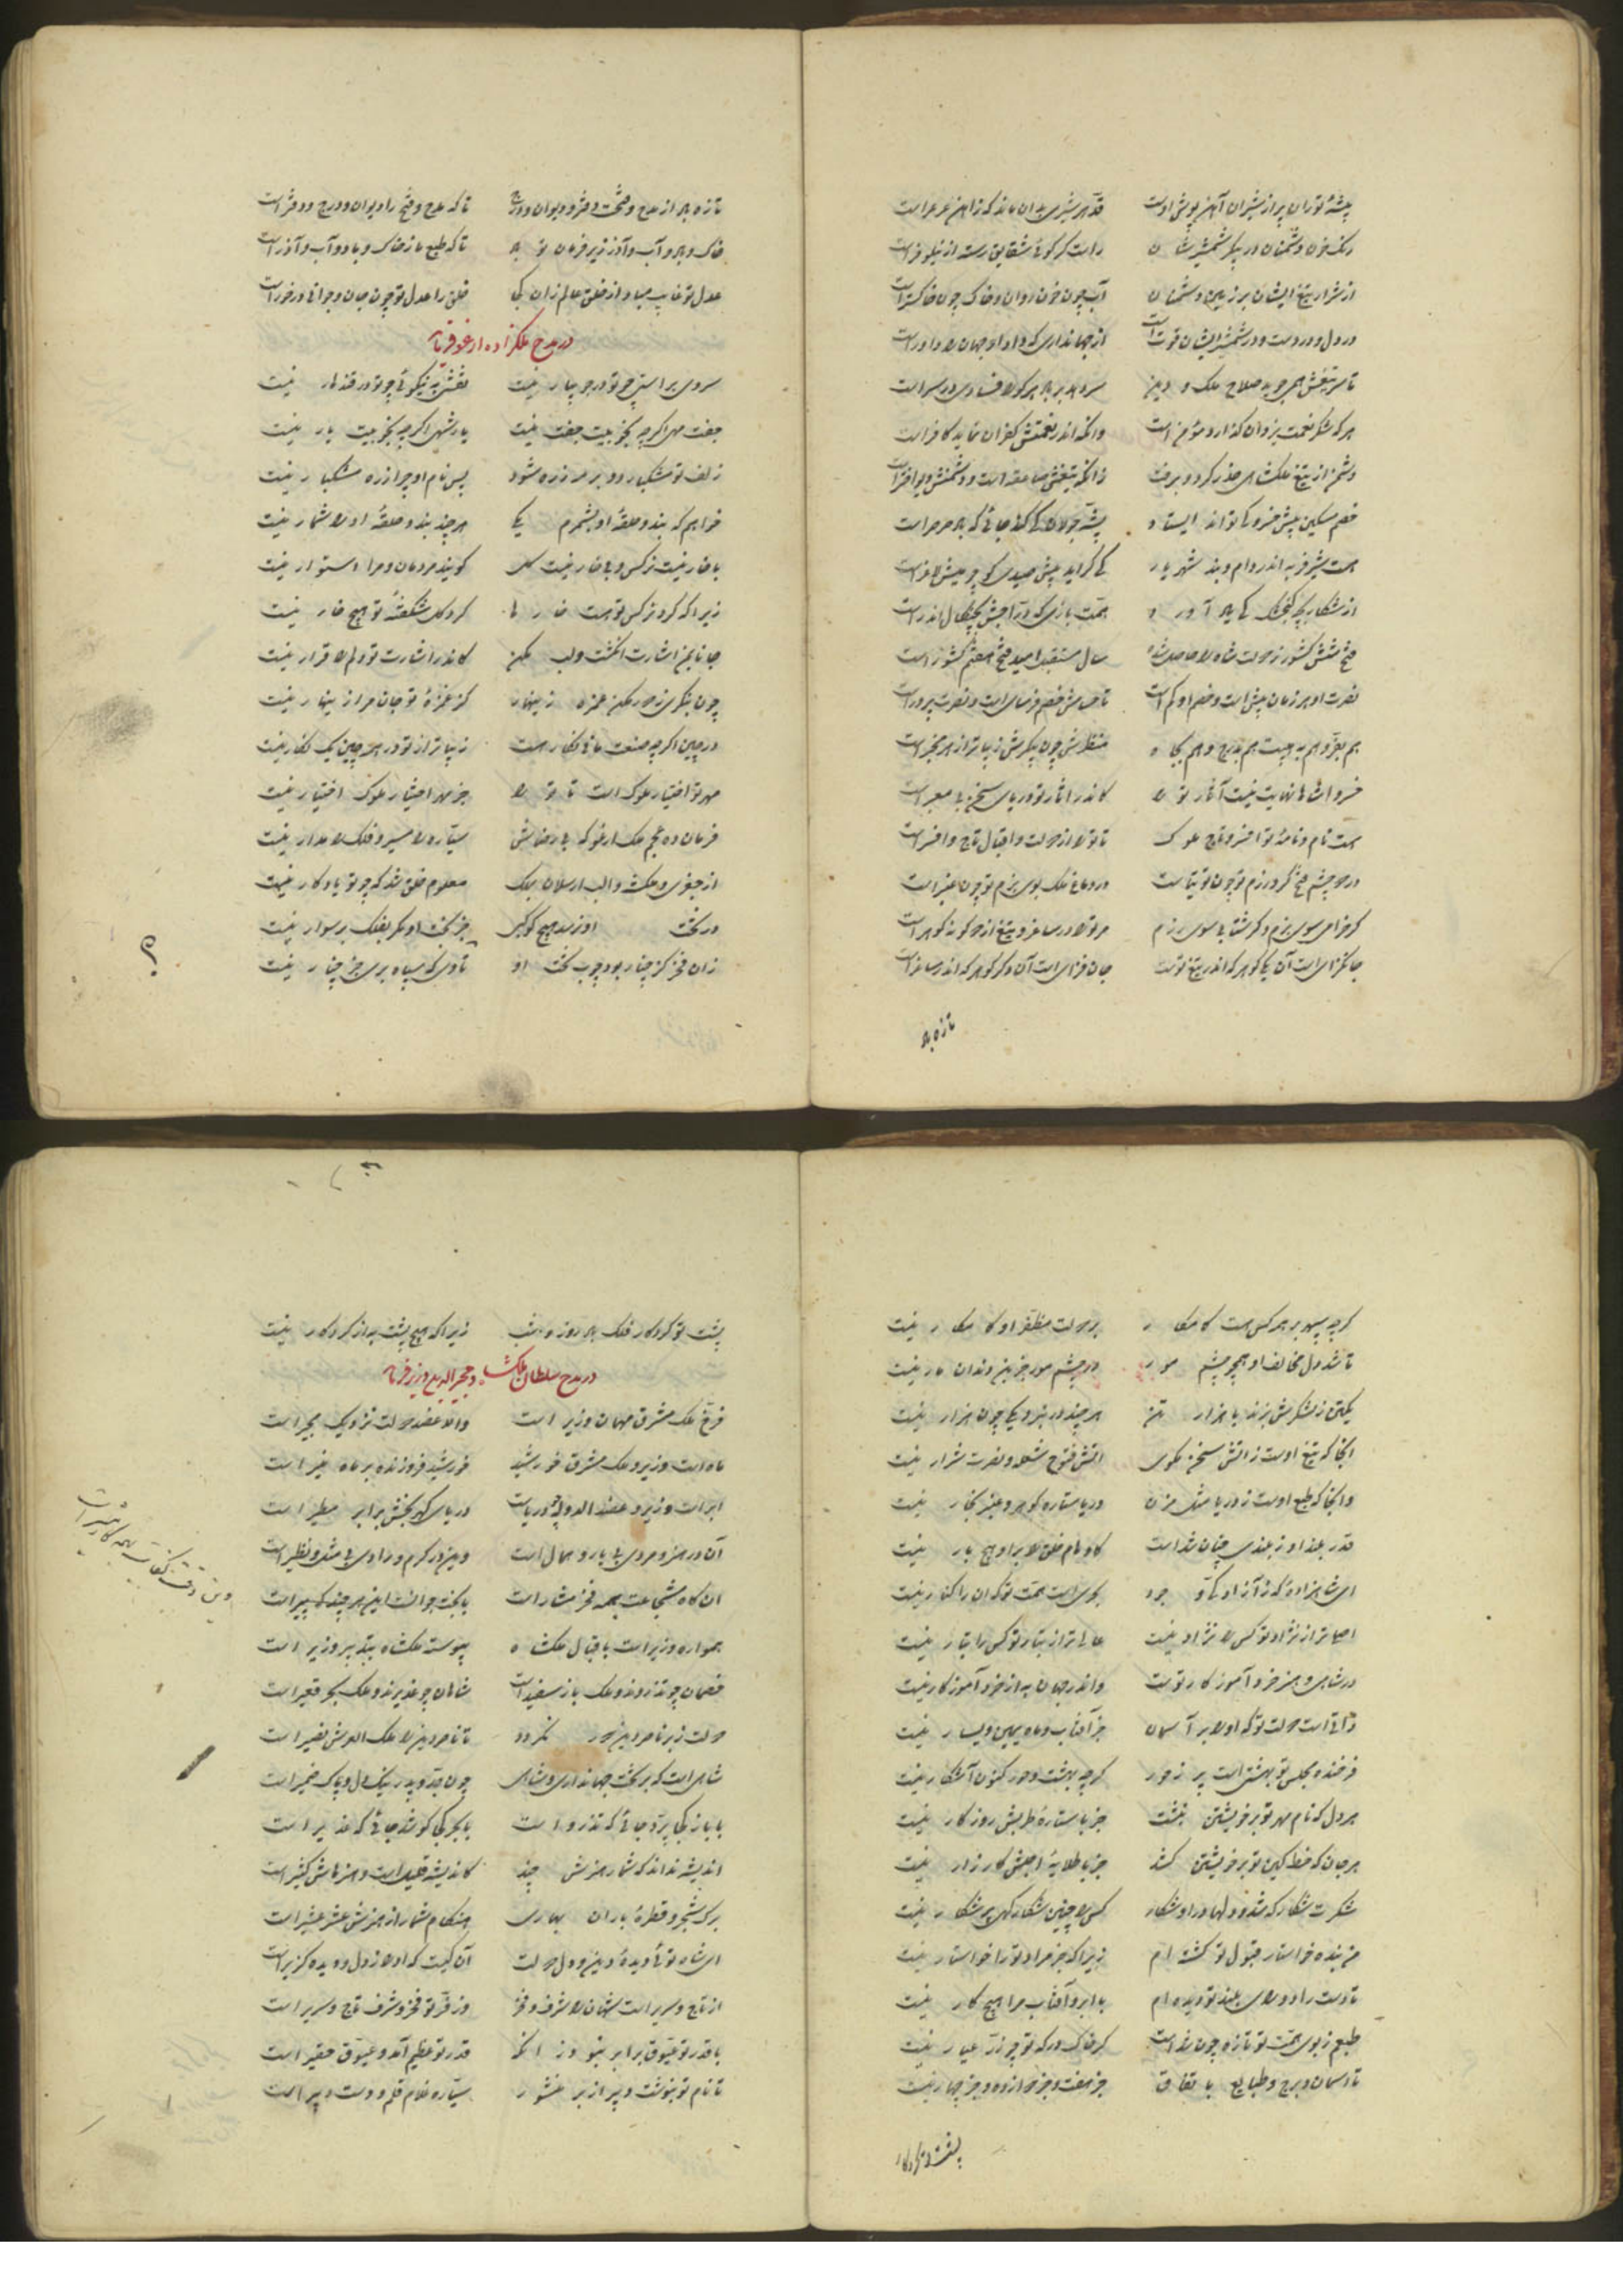 بیشهٔ توران پر از شیران آهن پوش اوست قد هر شیری بدان ماند که زاهن عرعر است
رنک خون دشمنان در پیکر شمشیرشان راست کوئی شقایق رسته از نیلوفر است
از شرار تیغ ایشان بر زمین دشمنان آب چون خون روان و خاک چون خاکستر است
در دل و در دست و در شمشیر ایشان قوت است از جهانداری که داد او جهان را داور است
تا سر تیغش همی جوید صلاح ملک و دین
هر که شکر نعمت یزدان کذارد مؤمن است وانکه اندر نعمتش کفران نماید کافر است
دشمن از تیغ ملکشاهی حذر کرد و برفت زانکه تیغش صاعقه است و دشمنش دیو افتر است
خصم مسکین پیش خسرو کی تواند ایستاد پشه جولان کی کند جائی که باد صرصر است
هست شیر فربه اندر دام و بند شهریار کی کراید پیش صیدی کو چو میش لاغر است
از شکار بچه کنجشک کی یاد آورد همت بازی که دراجش بچنکال اندر است
فتح شش کشور ز دولت شاه را حاصل شد سال مستقبل امید فتح هفتم کشور است
نصرت او هر زمان بیش است و خصم او کم است تا حسامش خصم فرسای است و نصرت پرور است
هم بقدر و هم بهیبت هم بمدح و هم بجاه منظرش چون پیکرش زیباتر از هر مخبر است
خسروا شاها نهایت نیست آثار ترا کاندر آثار تو دریای سخن بی معبر است
هست نام و نامهٔ تو افسر و تاج ملوک تا ترا از دولت و اقبال تاج و افسر است
در دو چشم فتح کرد رزم تو چون توتیاست در دماغ ملک بوی بزم تو چون عنبر است
کر خرامی سوی بزم و کر شتابی سوی رزم مر ترا در ساغر و تیغ از دو کونه کوهر است
جانکزای است آن یکی کوهر که اندر تیغ تست جان فزای است آن دکر کوهر که اندر ساغر است
تازه باد
تازه باد از مدح و فتحت دفتر و دیوان و درج تا که مدح و فتح را دیوان و درج و دفتر است
خاک و باد و آب و آذر زیر فرمان تو باد تا که طبع ما ز خاک و باد و آب و آذر است
عدل تو غایب مباد از خلق عالم زان کجا خلق را عدل تو چون جان و جوانی درخور است
در مدح ملکزاده ارغو فرماید
سروی براستی چو تو در جویبار نیست نقشی به نیکوئی چو تو در قندهار نیست
جفت مهی اکرچه بخوبیت جفت نیست یار شهی اکرچه بخوبیت یار نیست
زلف تو مشکبار و دو بر مه زره شود پس نام او چرا زره مشکبار نیست
خواهم که بند و حلقهٔ او بشمرم یکی هرچند بند و حلقهٔ او را شمار نیست
با خار نیست نرکس و بی خار نیست کل کویند مردمان و مرا استوار نیست
زیرا که کرد نرکس تو هست خارها کرد کل شکفتهٔ تو هیچ خار نیست
جانا بمن اشارت انکشت و لب مکن کاندر اشارت تو دلم را قرار نیست
چون بنکری ز دور مکن غمزه زینهار کز غمزهٔ تو جان مرا زینهار نیست
در چین اکرچه صنعت مانی نکار هست زیباتر از تو در همه چین یک نکار نیست
مهر تو اختیار ملوک است تا ترا جز مهر اختیار ملوک اختیار نیست
فرمان ده عجم ملک ارغو که بی رضاش سیاره را مسیر و فلک را مدار نیست
از جغری و ملکشه و الب ارسلان بملک معلوم خلق شد که چو تو یادکار نیست
در تخت او نرسد هیچ کوکبی جز بخت او مکر بفلک بر سوار نیست
زان فخر کز چنار بود چوب تخت او تا وی که سپاه بری جز چنار نیست
کرچه سپهر بر همه کس هست کامکار بر دولت مظفر او کامکار نیست
تا شد دل مخالف او همچو چشم مور در چشم مور جز بن دندان مار نیست
یکتن ز لشکرش بزند با هزار تن هرچند در نبرد یکی چون هزار نیست
آنجا که تیغ اوست ز آتش سخن مکوی کآتش فتوح شعله و نصرت شرار نیست
وانجا که طبع اوست ز دریا مثل مزن دریا ستاره کوهر و عنبر بخار نیست
قدر بلند او ز بلندی چنان شده است کاوهام خلق را بر او هیچ بار نیست
ای شاهزادهٔ که ز آزادکی و جود بحری است همت تو که آن را کنار نیست
اصلی تر از نژاد تو کس را نژاد نیست عالی تر از تبار تو کس را تبار نیست
در شاهی و هنر خرد آموزکار تست واندر جهان به از خرد آموزکار نیست
ذاتی است دولت تو که او را بر آسمان جز آفتاب و ماه یمین و یسار نیست
فرخنده مجلس تو بهشتی است پر ز حور کرچه بهشت و حور کنون آشکار نیست
هر دل که نام مهر تو بر خویشتن نبشت جز با ستارهٔ طربش روزکار نیست
هر جان که خط کین تو بر خویشتن کشد جز با طلایهٔ اجلش کارزار نیست
شکرت شکار کرد شد و دلها در او شکار کس را چنین شکارکهی پر شکار نیست
من بنده خواستار قبول تو کشته ام زیرا که جز مراد تو را خواستار نیست
تا دست راد و رای بلند تو دیده ام با ابر و آفتاب مرا هیچ کار نیست
طبعم ز بوی همت تو تازه چون شده است کر خاک درکه تو چو زر عیار نیست
تا آسمان و برج و طبایع باتفاق جز هفت و جز دوازده و جز چهار نیست
پشت تو کردکار
پشت تو کردکار فلک باد روز و شب زیرا که هیچ پشت به از کردکار نیست
در مدح سلطان ملکشاه و مجیرالدوله وزیر فرماید
فرخ ملک مشرق مهمان وزیر است والا عضد دولت نزدیک مجیر است
ماه است وزیر و ملک مشرق خورشید خورشید فروزنده بر ماه منیر است
ابر است وزیر و عضد الدوله چو دریاست دریای کهر بخش برابر مطیر است
آن در هنر و مردی بی یار و همال است وین در کرم و رادی بی مثل و نظیر است
آن کاه شجاعت بهمه فخر مشار است با بخت جوان است این هرچند که پیر است
وین وقت کفایت بهمه کار مشیر است
همواره وزیر است باقبال ملکشاه پیوسته ملکشاه بتدبیر وزیر است
خصمان چو تذروند و ملک باز سفید است شاهان چو غدیرند و ملک بحر قعیر است
دولت ز بر نامور دین دور نکردد تا ناصر دین را ملک العرش نصیر است
شاهی است که بر تخت جهانداری و شاهی چون جد و پدر نیک دل و پاک ضمیر است
با باز کجا پرد جائی که تذرو است با بحر کجا کوشد جائی که غدیر است
اندیشه نداند که شمار هنرش چند کاندیشه قلیل است و هنرهاش کثیر است
برک شجر و قطرهٔ باران بهاری هنکام شمار از هنرش عشر عشیر است
ای شاه تو ئی دیدهٔ دین و دل دولت آن کیست که او را ز دل و دیده کزیر است
از تاج و سریر است شهان را شرف و فخر وز فر تو فخر و شرف تاج و سریر است
با قدر تو عیوق برابر نبود زانکه قدر تو عظیم آمد و عیوق حقیر است
تا نام تو بنوشت دبیر از بر منشور سیاره غلام قلم و دست دبیر است